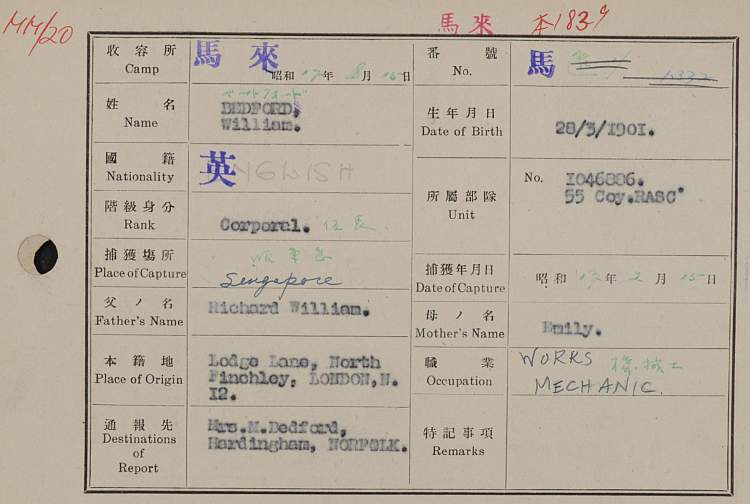 MM/20
馬來 本1839
收容所
Camp
馬來
昭和 17年 8月 15日
番號
No.
馬
姓名
Name
BEDFORD,
William.
生年月日
Date of Birth
28/5/1901.
國籍
Nationality
英
ENGLISH
所屬部隊
Unit
No. 1046886.
55 Coy.RASC
階級身分
Rank
Corporal. 伍長
捕獲場所
Place of Capture
Singapore
捕獲年月日
Date of Capture
昭和 17年 2月 15日
父ノ名
Father's Name
Richard William.
母ノ名
Mother's Name
Emily.
本籍地
Place of Origin
Lodge Lane, North
Finchley, LONDON,N.
12.
職業
Occupation
WORKS 機械工
MECHANIC.
通報先
Destinations
of
Report
Mrs.M.Bedford,
Hardingham, NORFOLK.
特記事項
Remarks